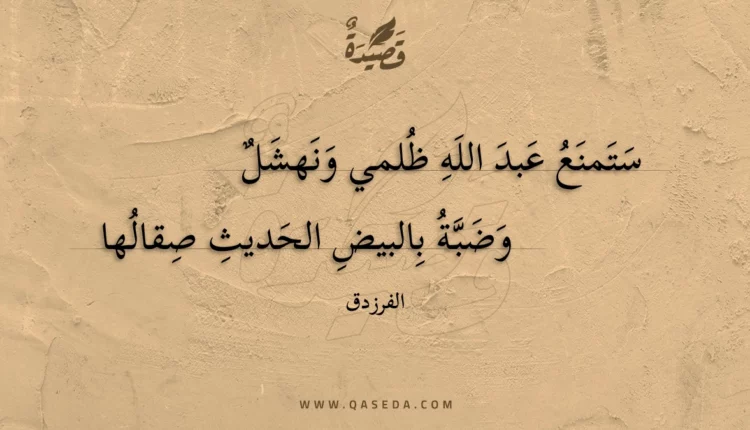 قَصِيدَةٌ
سَتَمنَعُ عَبدَ اللَهِ ظُلمي وَنَهشَلٌ
وَضَبَّةُ بِالبيضِ الحَديثِ صِقالُها
الفرزدق
WWW.QASEDA.COM